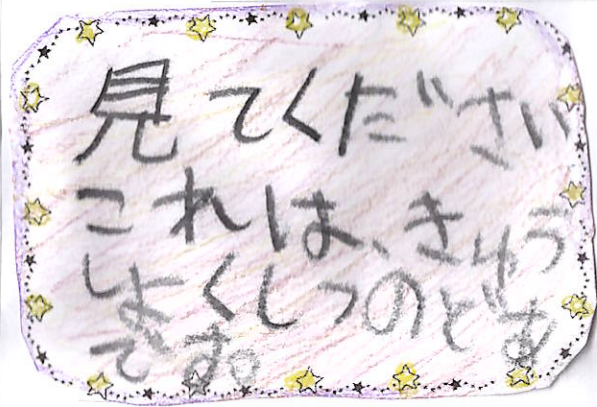 見てください
これは、きゅう
しょくしつのどあ
です。